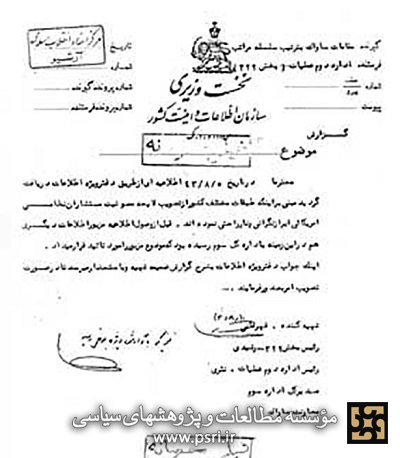 مرکز اسناد انقلاب اسلامی
آرشیو
نخست وزیری
سازمان اطلاعات و امنیت کشور
گیرنده مقامات ساواک بترتیب سلسله مراتب
فرستنده اداره دوم عملیات و بخش ۳۲۲
شماره
پیوست
تاریخ
شماره
شماره پرونده گیرنده
شماره پرونده فرستنده
گزارش
موضوع
محترما در تاریخ ۴۳/۸/۵ اطلاعیه ای از طریق دفتر ویژه اطلاعات دریافت
گردید مبنی بر اینکه طبقات مختلف کشور از تصویب لایحه مصونیت مستشاران نظامی
امریکائی ابراز نگرانی و ناراحتی نموده اند . قبل از وصول اطلاعیه مزبور اطلاعات دیگری
هم در این زمینه باداره کل سوم رسیده بود که موضوع مزبور مورد تائید قرار میداد .
اینک جواب دفتر ویژه اطلاعات بشرح گزارش ضمیمه تهیه و باستحضار میرساند تا در صورت
تصویب امر بصدور فرمایند .
تهیه کننده .
رئیس بخش ۳۲۲ - رشیدی
رئیس اداره دوم عملیات -
مدیرکل اداره سوم
مؤسسه مطالعات و پژوهشهای سیاسی
www.psri.ir